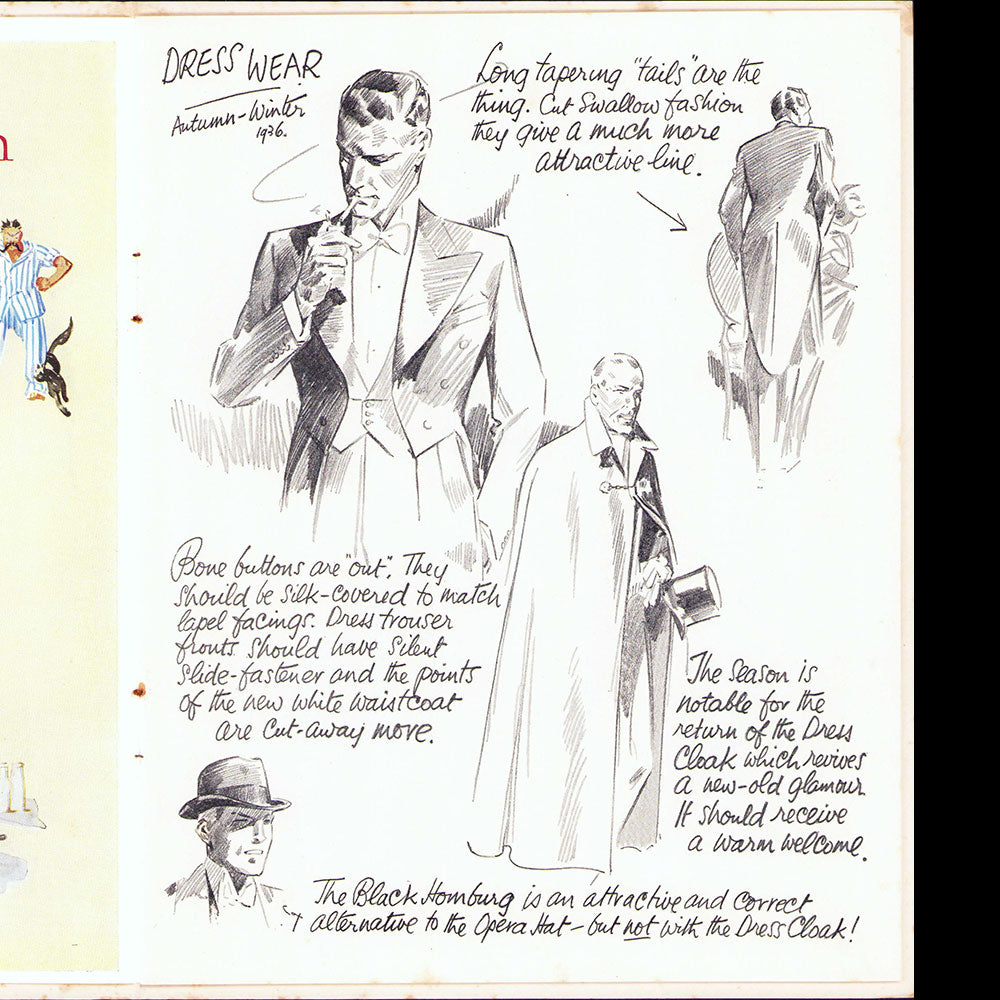 DRESS WEAR
Autumn-Winter
1936.
Long tapering "tails" are the
thing. Cut Swallow fashion
they give a much more
attractive line.
Bone buttons are "out". They
should be silk-covered to match
lapel facings. Dress trouser
fronts should have silent
slide-fastener and the points
of the new white waistcoat
are cut-away more.
The season is
notable for the
return of the Dress
Cloak which revives
a new-old glamour.
It should receive
a warm welcome.
The Black Homburg is an attractive and correct
alternative to the Opera Hat - but not with the Dress Cloak!